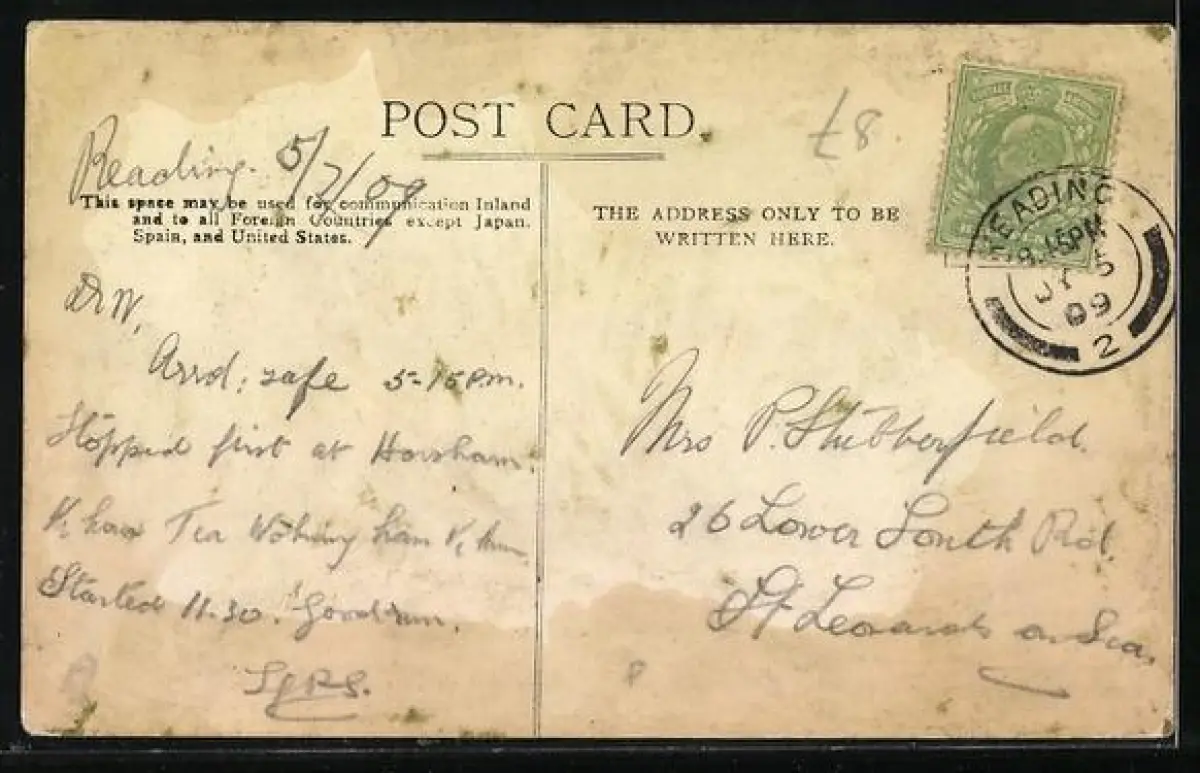 POST CARD.
£8.
Reading. 5/7/09
This space may be used for communication Inland
and to all Foreign Countries except Japan,
Spain, and United States.
THE ADDRESS ONLY TO BE
WRITTEN HERE.
READING
8.15PM
JY 5
09
2
Arrd: safe 5-15 p.m.
Stopped first at Horsham.
Tea
Started 11-30. Good run.
Mrs P. Stubberfield.
26 Lower South Rd.
St Leonards on Sea.